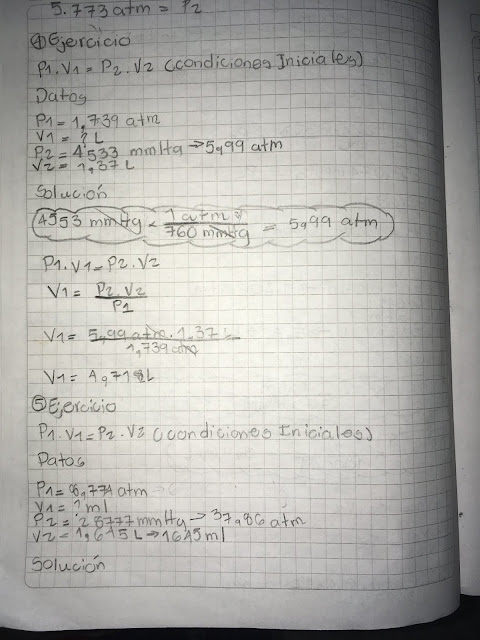 5.773 atm = P2
④ Ejercicio
P1.V1 = P2.V2 (condiciones Iniciales)
Datos
P1 = 1,739 atm
V1 = ? L
P2 = 4533 mmHg → 5,99 atm
V2 = 1,37 L
Solución
4553 mmHg × 1 atm / 760 mmHg = 5,99 atm
P1.V1 = P2.V2
V1 = P2.V2 / P1
V1 = 5,99 atm . 1,37 L / 1,739 atm
V1 = 4,718 L
⑤ Ejercicio
P1.V1 = P2.V2 (condiciones Iniciales)
Datos
P1 = 8,774 atm
V1 = ? ml
P2 = 28777 mmHg → 37,86 atm
V2 = 1,645 L → 1645 ml
Solución